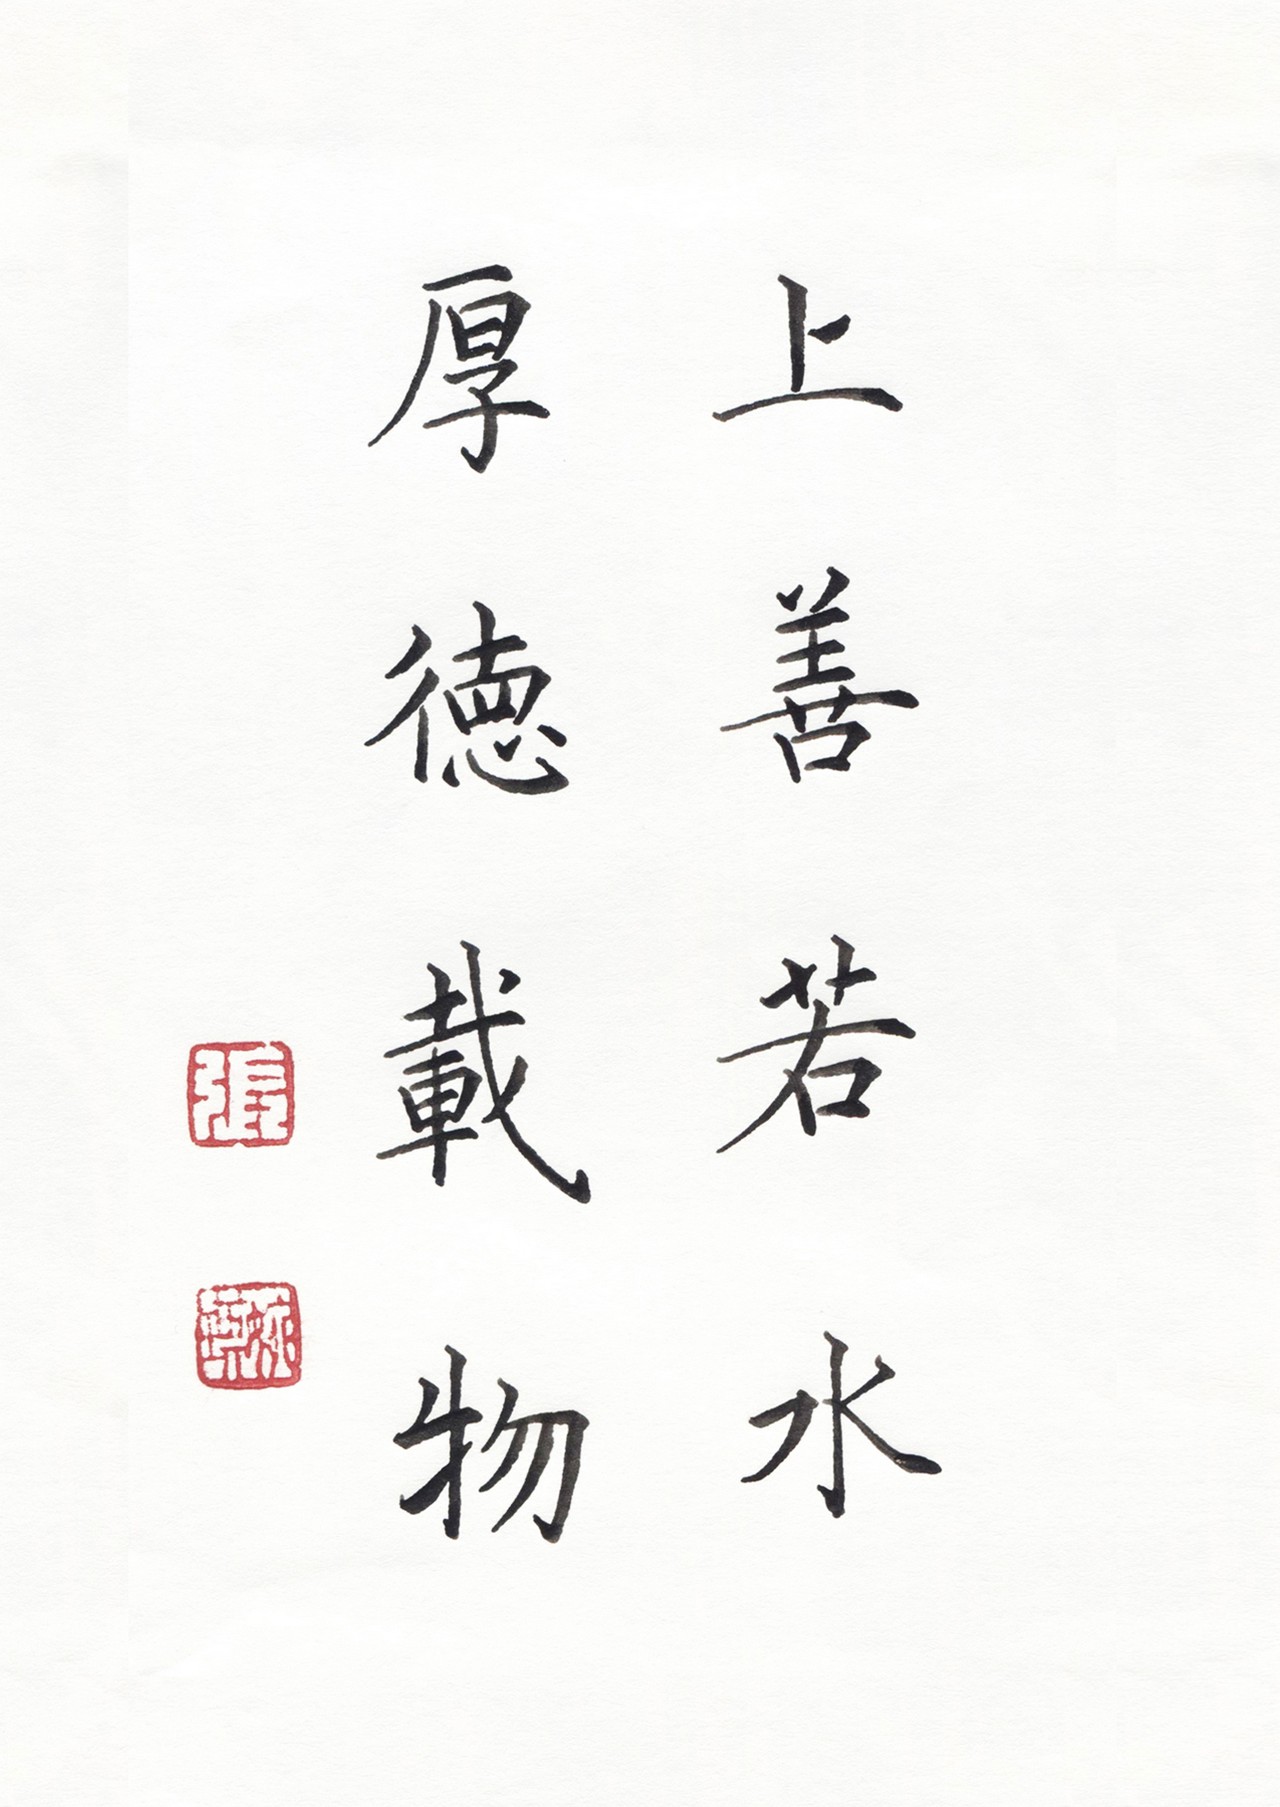 上善若水
厚徳載物
張